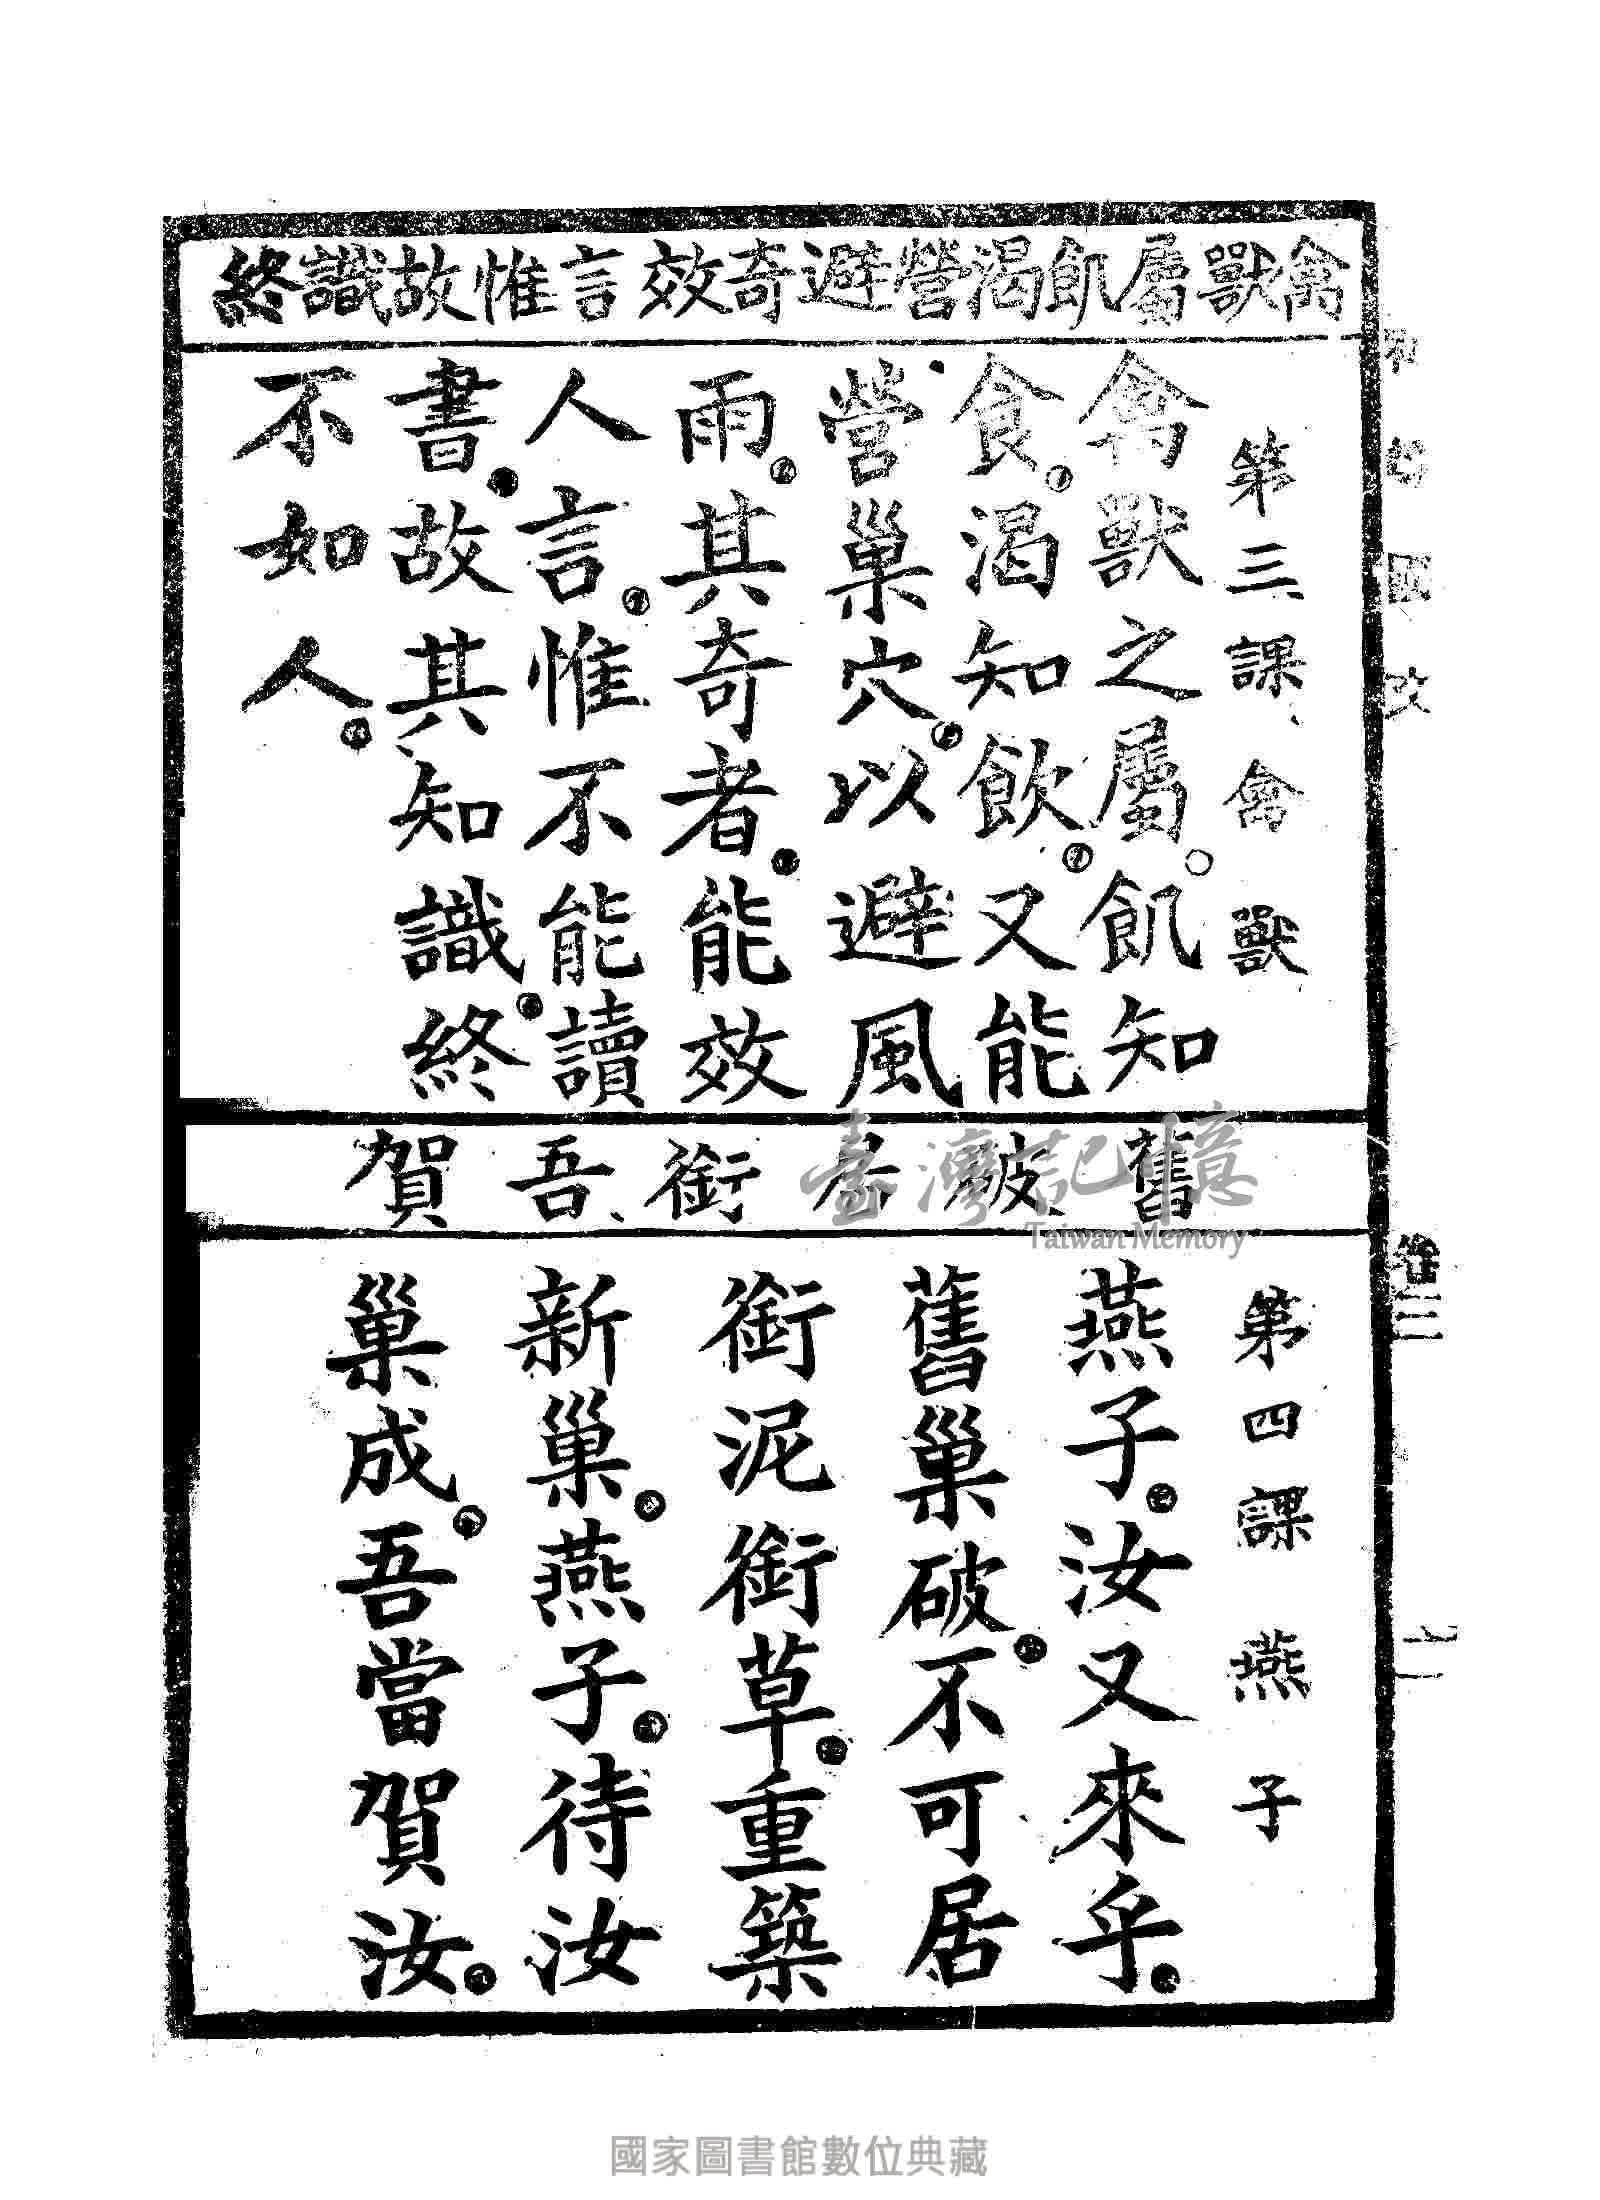 禽獸屬飢渴營避奇效言惟故識終
第三課、禽獸
禽獸之屬。飢知
食。渴知飲。又能
營巢穴。以避風
雨。其奇者。能效
人言。惟不能讀
書。故其知識。終
不如人。
舊破居銜吾賀
第四課燕子
燕子。汝又來乎。
舊巢破。不可居
銜泥銜草。重築
新巢。燕子。待汝
巢成。吾當賀汝。
卷三
臺灣記憶
Taiwan Memory
國家圖書館數位典藏